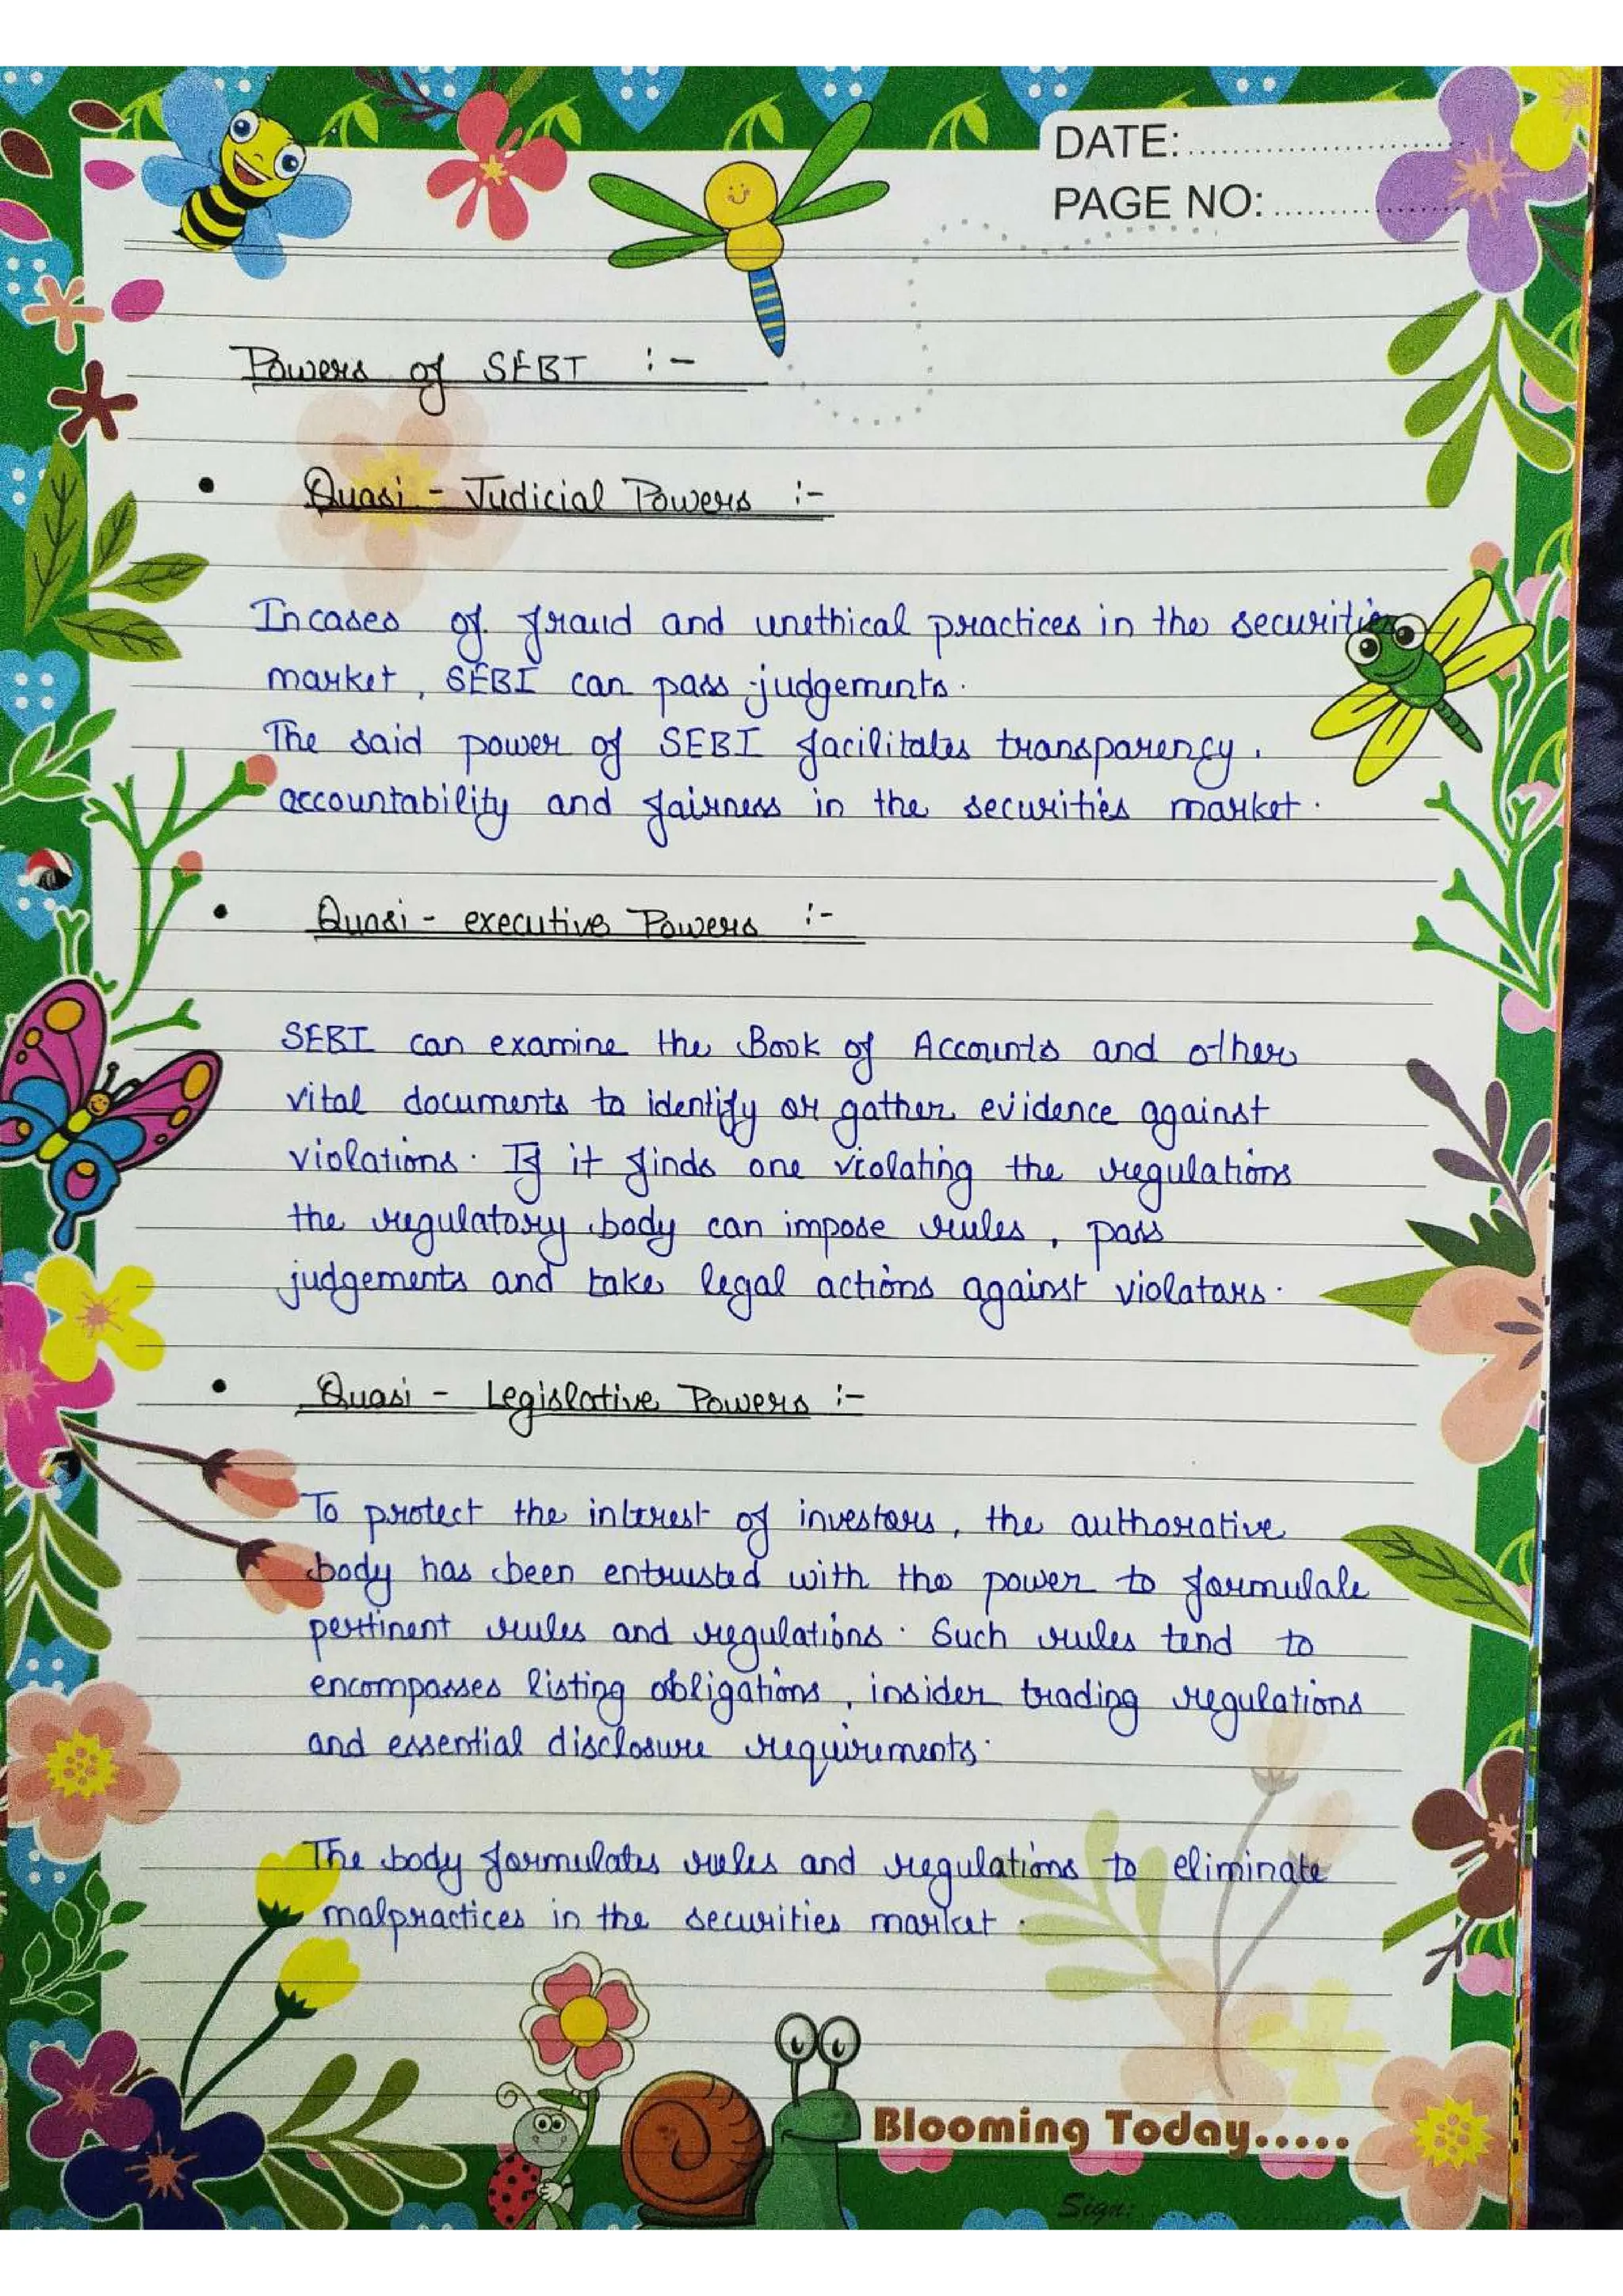 DATE:
PAGE NO:
Powers of SEBI :-
• Quasi - Judicial Powers :-
Incases of fraud and unethical practices in the securities
market, SEBI can pass judgements.
The said power of SEBI facilitates transparency,
accountability and fairness in the securities market.
• Quasi - executive Powers :-
SEBI can examine the Book of Accounts and other
vital documents to identify or gather evidence against
violations. If it finds one violating the regulations
the regulatory body can impose rules, pass
judgements and take legal actions against violators.
• Quasi - Legislative Powers :-
To protect the interest of investors, the authorative
body has been entrusted with the power to formulate
pertinent rules and regulations. Such rules tend to
encompasses listing obligations, insider trading regulations
and essential disclosure requirements.
The body formulates rules and regulations to eliminate
malpractices in the securities market.
Blooming Today.....
Sign: